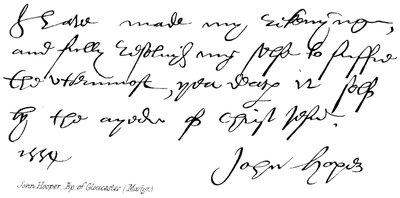 I have made my rekenynge,
and fully resolvid my selfe to suffre
the vttermost, yea death it self
by the ayede of christ Jesu.
1554 John Hoper
John Hooper, Bp. of Gloucester (Martyr)